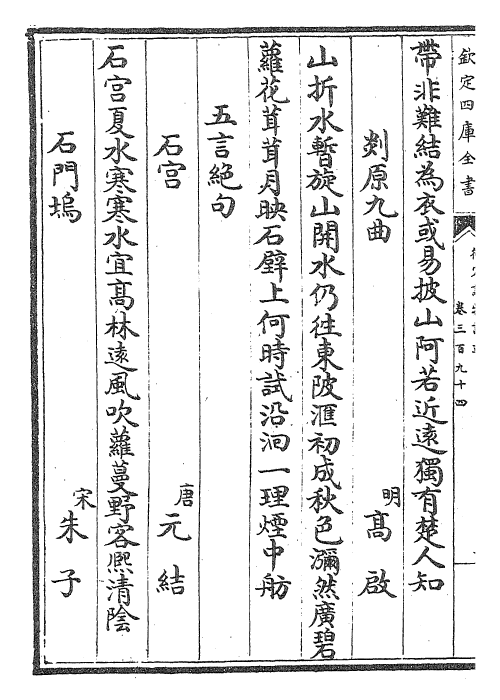 欽定四庫全書
卷三百九十四
帶非難結為衣或易披山阿若近遠獨有楚人知
剡原九曲 明 高啟
山折水暫旋山開水仍往東陂滙初成秋色瀰然廣碧
蘿花茸茸月映石壁上何時試沿洄一理煙中舫
五言絶句
石宮 唐 元結
石宮夏水寒寒水宜髙林逺風吹蘿蔓野客熈清陰
石門塢 宋 朱子